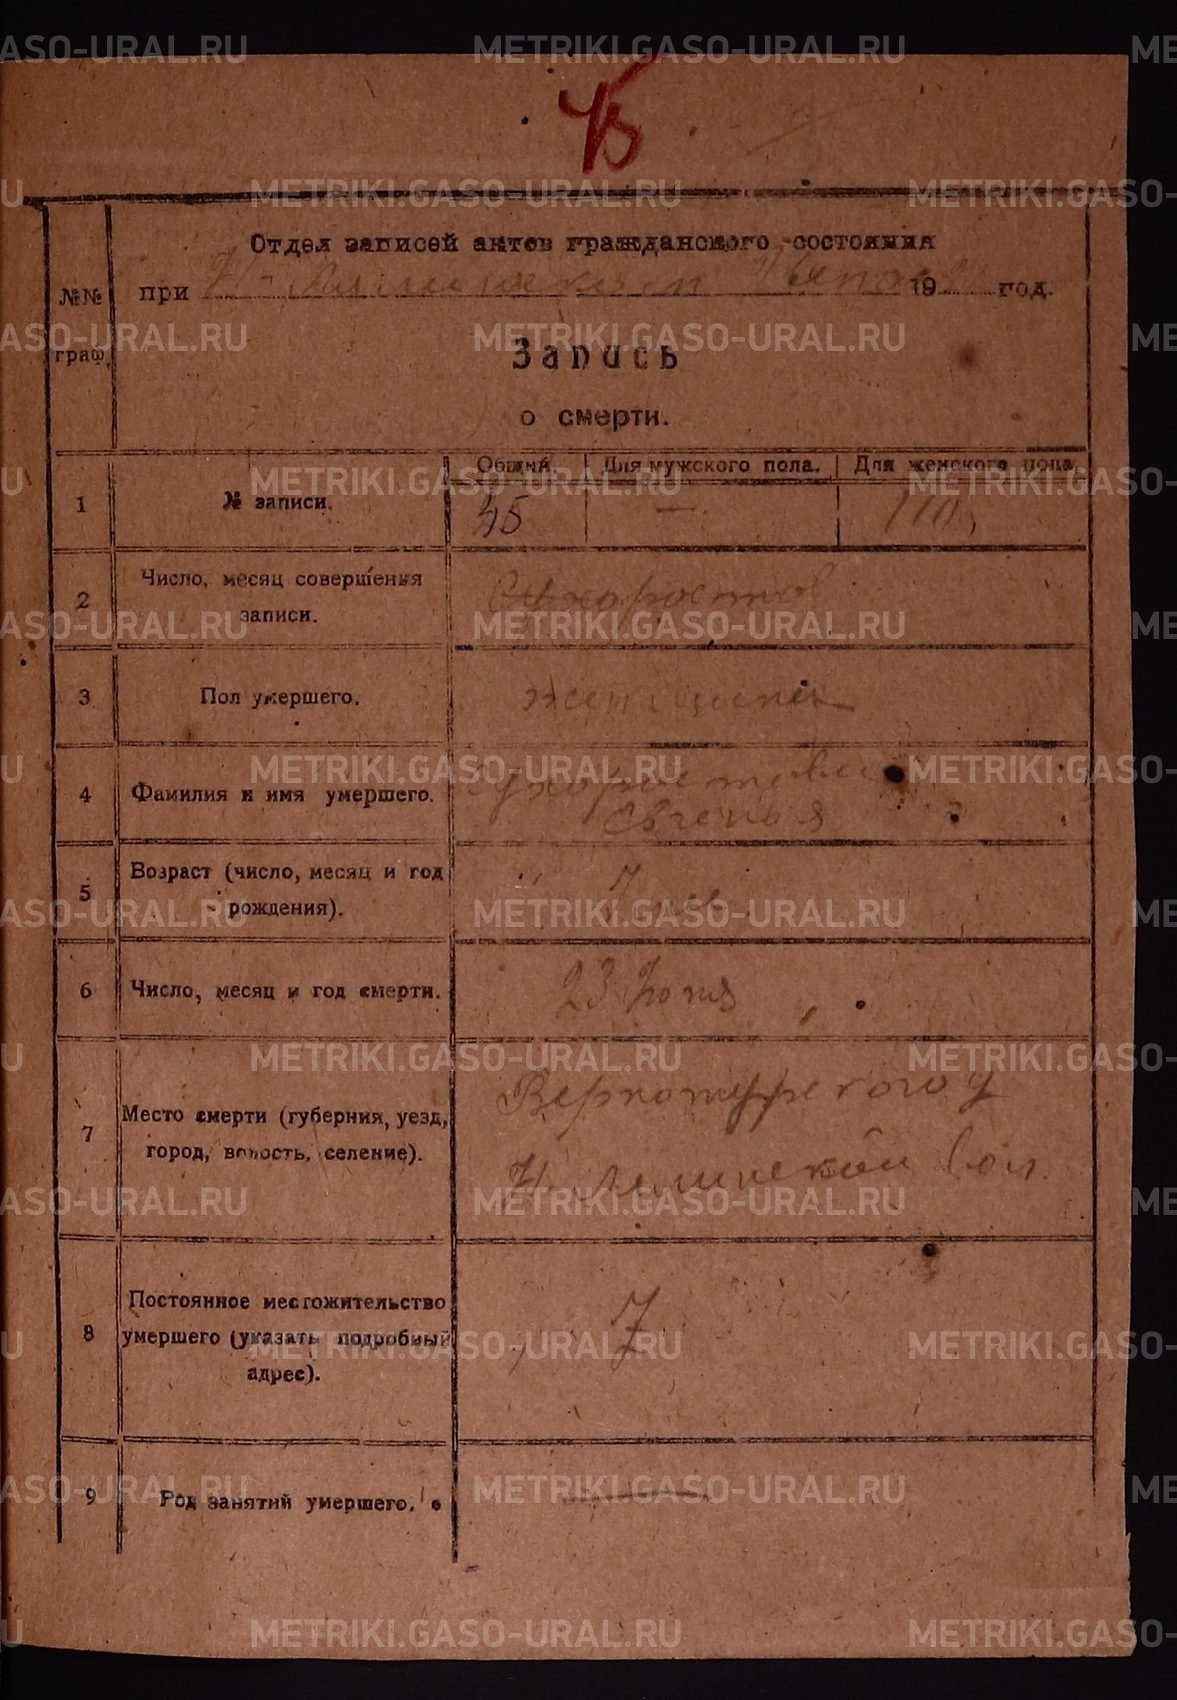 45
Отдел записей актов гражданского состояния
при 19 год.
№№
граф
Запись
о смерти.
Общий. Для мужского пола. Для женского пола
1 № записи. 45 —
2 Число, месяц совершения
записи.
3 Пол умершего. женщина
4 Фамилия и имя умершего.
Евгенья
5 Возраст (число, месяц и год
рождения).
6 Число, месяц и год смерти. 23 Июня
7 Место смерти (губерния, уезд,
город, волость, селение).
Верхотурского у
Н. Лялинской вол.
8 Постоянное местожительство
умершего (указать подробный
адрес).
9 Род занятий умершего. —
METRIKI.GASO-URAL.RU